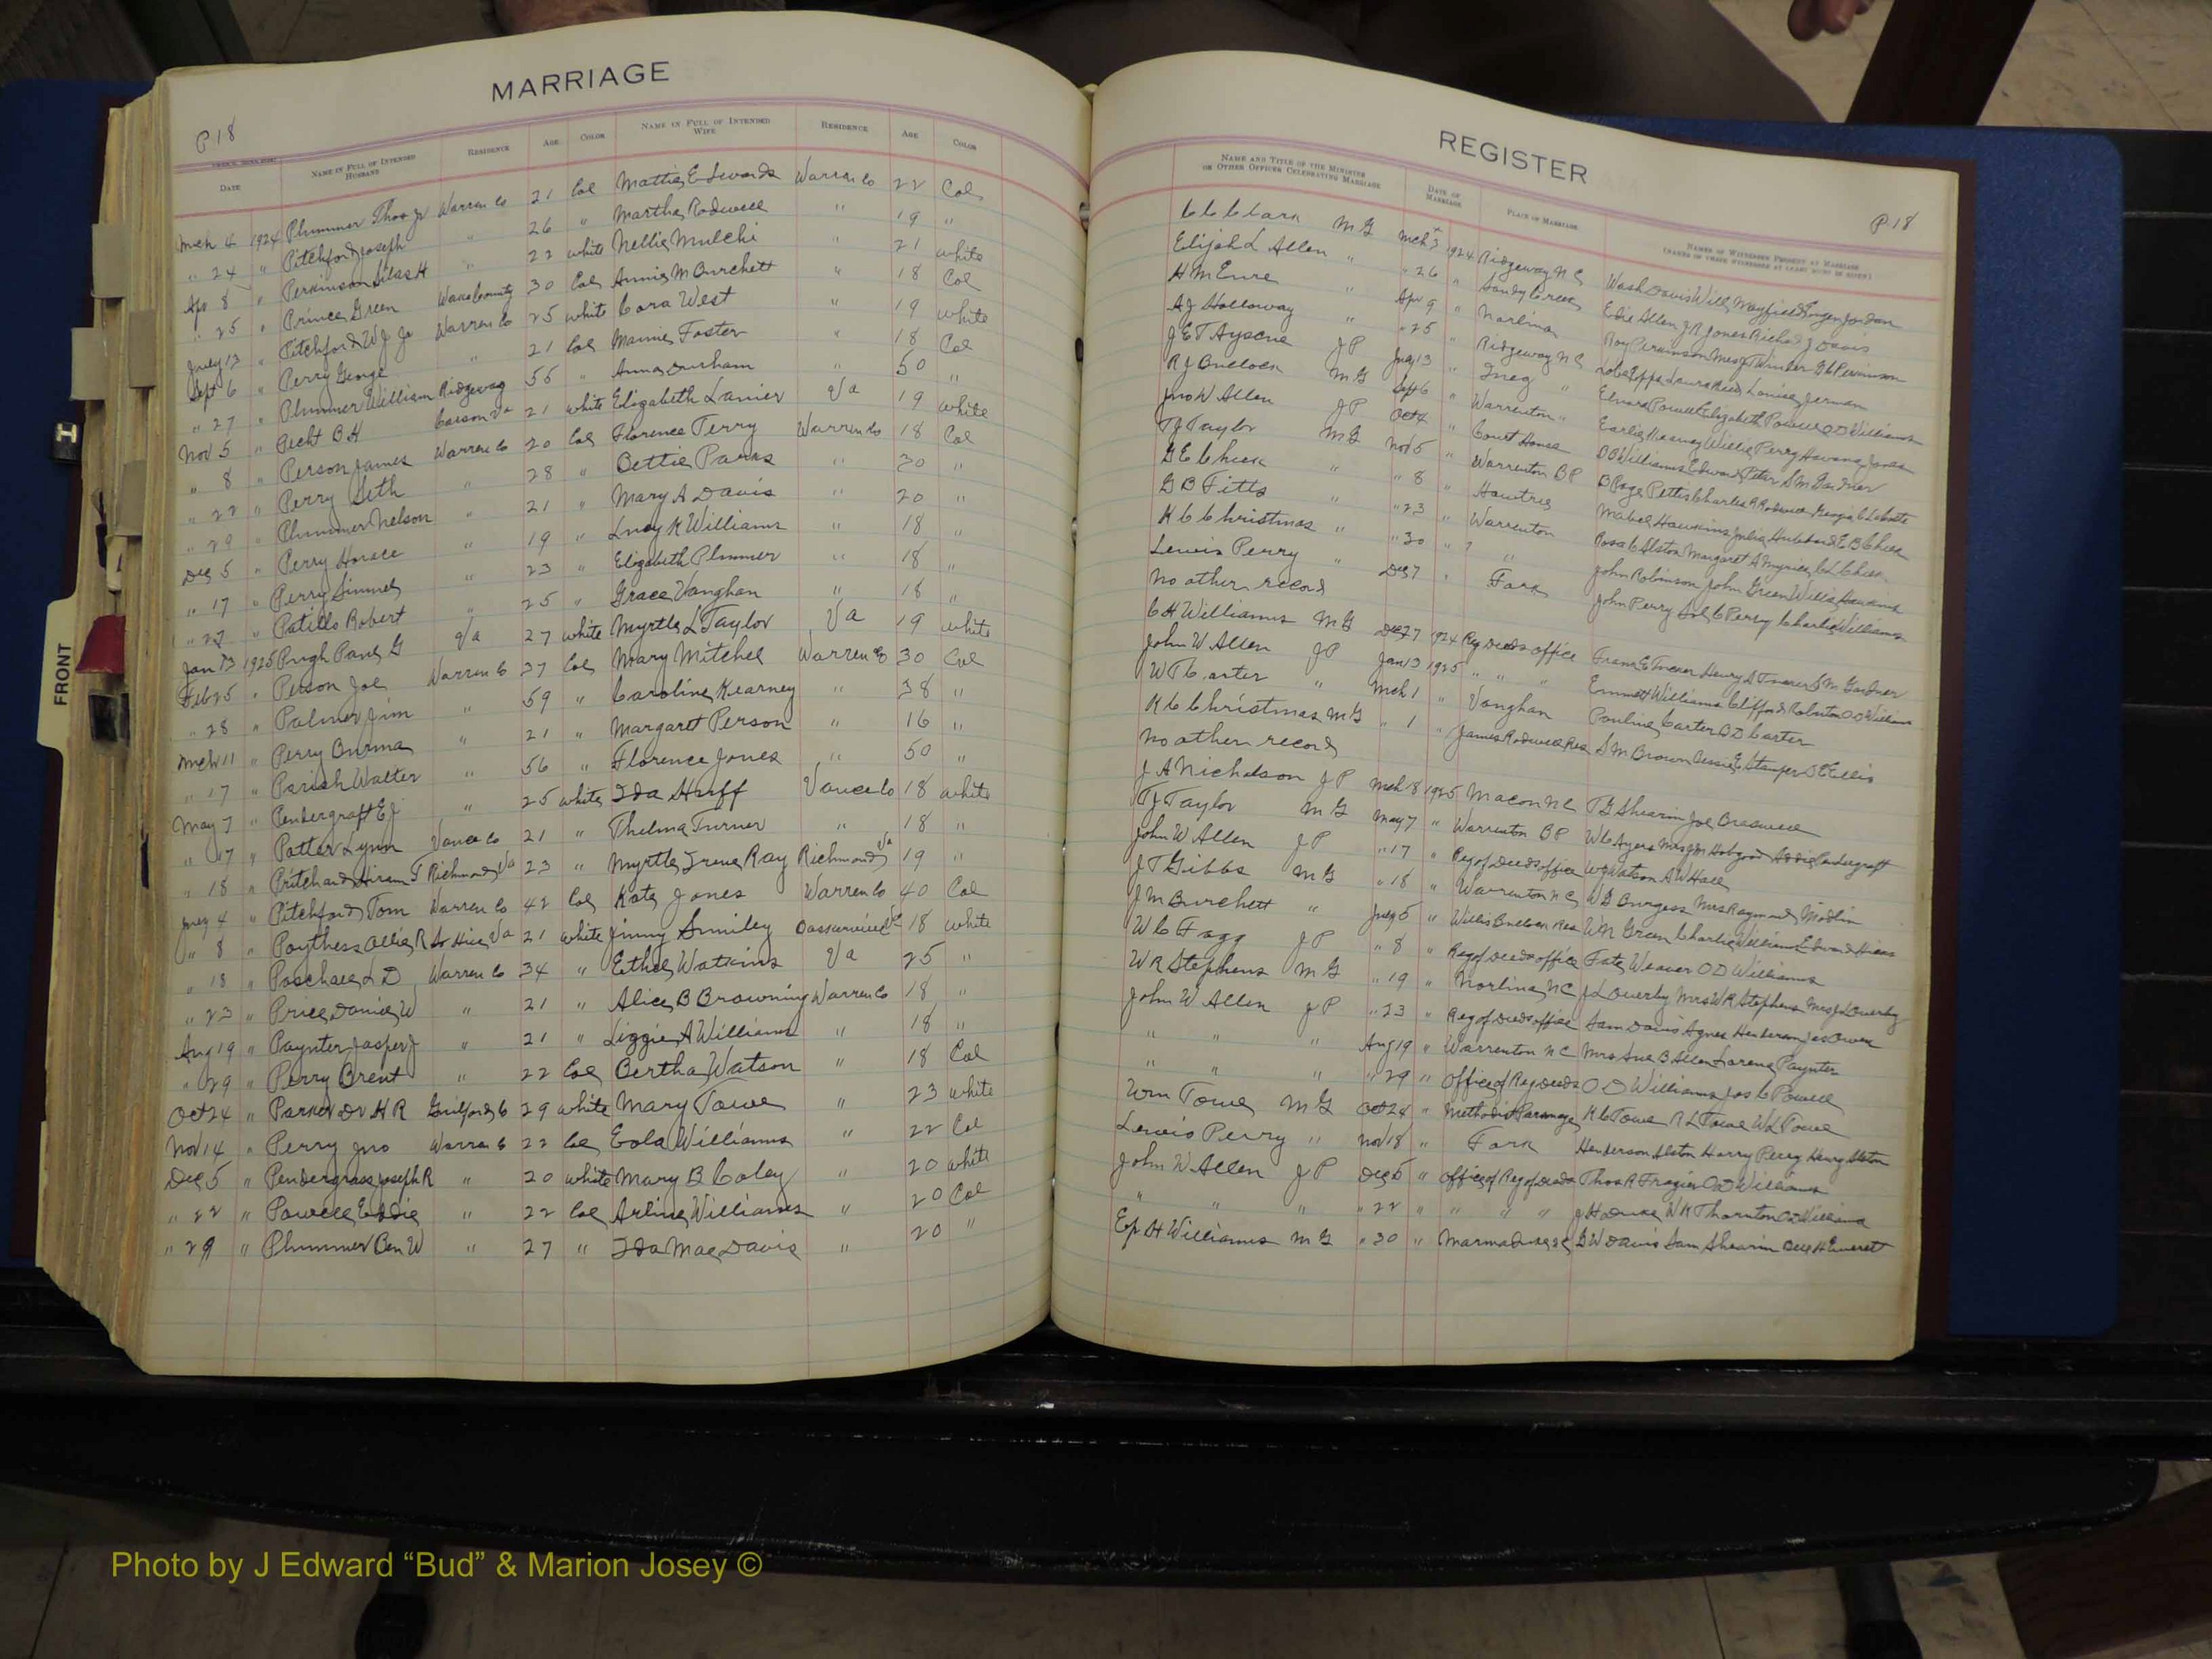 MARRIAGE
P 18
DATE NAME IN FULL OF INTENDED HUSBAND RESIDENCE AGE COLOR NAME IN FULL OF INTENDED WIFE RESIDENCE AGE COLOR
Mch 4 1924 Plummer Thos Jr Warren Co 21 Col Mattie Edwards Warren Co 22 Col
" 24 " Pitchford Joseph " 26 " Martha Rodwell " 19 "
Apr 8 " Perkinson Silas H " 22 white Nellie Mulchi " 21 white
" 25 " Prince Green Wake County 30 Col Annie M Burchett " 18 Col
July 13 " Pitchford W J Jr Warren Co 25 white Cora West " 19 white
Sept 6 " Perry George " 21 Col Mamie Foster " 18 Col
" 27 " Plummer William Ridgeway 56 " Anna Durham " 50 "
Nov 5 " B H Carson Va 21 white Elizabeth Lanier Va 19 white
" 8 " Person James Warren Co 20 Col Florence Terry Warren Co 18 Col
" 22 " Perry Seth " 28 " Bettie Parks " 30 "
" 29 " Plummer Nelson " 21 " Mary A Davis " 20 "
Dec 5 " Perry Horace " 19 " Lucy K Williams " 18 "
" 17 " Perry Simmie " 23 " Elizabeth Plummer " 18 "
" 27 " Patillo Robert " 25 " Grace Vaughan " 18 "
Jan 13 1925 Pugh Paul G Va 27 white Myrtle L Taylor Va 19 white
Feb 25 " Person Joe Warren Co 37 Col Mary Mitchel Warren Co 30 Col
" 28 " Palmer Jim " 59 " Caroline Kearney " 38 "
Mch 11 " Perry Burma " 21 " Margaret Person " 16 "
" 17 " Parish Walter " 56 " Florence Jones " 50 "
May 7 " Pendergraft E J " 25 white Ida Huff Vance Co 18 white
" 17 " Potter Lynn Vance Co 21 " Thelma Turner " 18 "
" 18 " Pritchard Hiram T Richmond Va 23 " Myrtle Irene Ray Richmond Va 19 "
July 4 " Pitchford Tom Warren Co 42 Col Kate Jones Warren Co 40 Col
" 8 " Poythess Allie R So Hill Va 21 white Jinny Smiley 18 white
" 18 " Paschall L D Warren Co 34 " Ethel Watkins Va 25 "
" 23 " Price Daniel W " 21 " Alice B Browning Warren Co 18 "
Aug 19 " Paynter Jasper J " 21 " Lizzie A Williams " 18 "
" 29 " Perry Brent " 22 Col Bertha Watson " 18 Col
Oct 24 " Parker Dr H R Guilford Co 29 white Mary Towe " 23 white
Nov 14 " Perry Jno Warren Co 22 Col Eola Williams " 22 Col
Dec 5 " Pendergrass Joseph R " 20 white Mary B Coley " 20 white
" 22 " Powell Eddie " 22 Col Arline Williams " 20 Col
" 29 " Plummer Ben W " 27 " Ida Mae Davis " 20 "
REGISTER
P 18
NAME AND TITLE OF THE MINISTER OR OTHER OFFICER CELEBRATING MARRIAGE DATE OF MARRIAGE PLACE OF MARRIAGE NAMES OF WITNESSES PRESENT AT MARRIAGE
C C Clark M G Mch 1924 Ridgeway N C Wash Davis Will Mayfield Jordan
Elijah L Allen " " 26 " Sandy Creek Edie Allen J R Jones Richard J Davis
H M Eure " Apr 9 " Norlina Roy Perkinson Mrs J T Winder G C Perkinson
A J Holloway " " 25 " Ridgeway N C Epps Laura Reid Louise Jerman
J E T Ayscue J P July 13 " Inez " Edward Powell Elizabeth Powell O D Williams
R J Bullock M G Sept 6 " Warrenton " Earlie Kearney Willie Perry Havana Jones
Jno W Allen J P Oct 4 " Court House O D Williams Edward Peter S M Gardner
T J Taylor M G Nov 5 " Warrenton B P B Page Pettis Charles R Rodwell Georgia
G E Cheek " " 8 " Hawtree Mabel Hawkins Julia Hubbard E B Cheek
G B Fitts " " 23 " Warrenton Rosa C Alston Margaret A Myrick C L Cheek
K C Christmas " " 30 " ? " John Robinson John Green Willis Hawkins
Lewis Perry " Dec 7 " Fork John Perry Sol C Perry Charlie Williams
No other record
C H Williams M G Dec 27 1924 Reg Deeds office Frank E Tucker Henry D Tucker S M Gardner
John W Allen J P Jan 13 1925 " " " Emmett Williams Clifford Robertson O D Williams
W T Carter " Mch 1 " Vaughan Pauline Carter O D Carter
K C Christmas M G " 1 " James Rodwell Res S M Brown Bessie E Stamper S E Ellis
No other record
J A Nicholson J P Mch 18 1925 Macon N C T G Shearin Joe Braswell
T J Taylor M G May 7 " Warrenton B P W C Ayers Mrs J M Hobgood Addie Pendergraft
John W Allen J P " 17 " Reg of Deeds office W G Watson A W Hall
J T Gibbs M G " 18 " Warrenton N C W B Burgess Mrs Raymond Modlin
J M Burchett " July 5 " Willis Bullock Res W N Green Charlie Williams Edward Hicks
W C Fagg J P " 8 " Reg of Deeds office Fate Weaver O D Williams
W R Stephens M G " 19 " Norlina N C J L Overby Mrs W R Stephens Mrs J L Overby
John W Allen J P " 23 " Reg of Deeds office Sam Davis Agnes Henderson Jas Owen
" " " Aug 19 " Warrenton N C Mrs Sue B Allen Lorena Paynter
" " " " 29 " Office of Reg Deeds O D Williams Jos C Powell
Wm Towe M G Oct 24 " Methodist Parsonage K C Towe R L Towe W L Towe
Lewis Perry " Nov 18 " Fork Henderson Alston Harry Perry Henry Alston
John W Allen J P Dec 5 " Office of Reg of Deeds Thos R Frazier O D Williams
" " " " 22 " " " " J H Duke W K Thornton O D Williams
Ep H Williams M G " 30 " Marmaduke N C G W Davis Sam Shearin H Everett
FRONT
Photo by J Edward “Bud” & Marion Josey ©